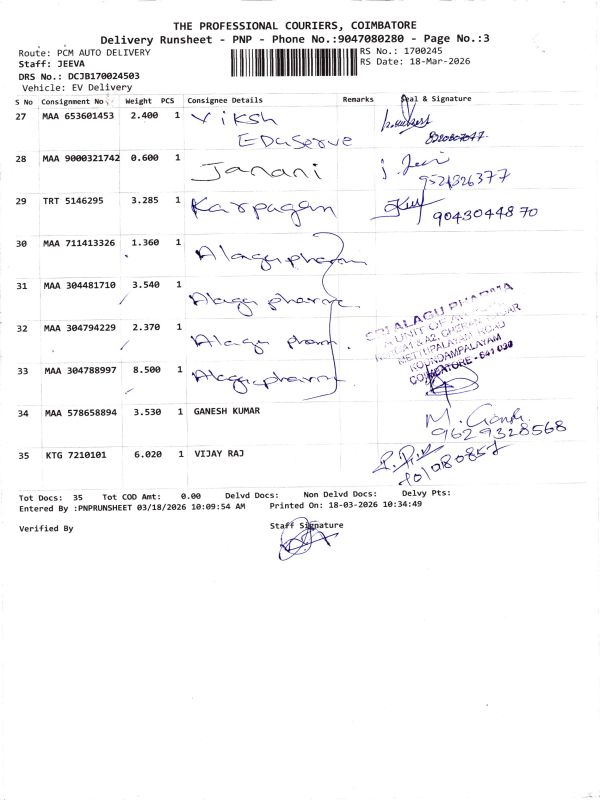 THE PROFESSIONAL COURIERS, COIMBATORE
Delivery Runsheet - PNP - Phone No.:9047080280 - Page No.:3
Route: PCM AUTO DELIVERY
RS No.: 1700245
Staff: JEEVA
RS Date: 18-Mar-2026
DRS No.: DCJB170024503
Vehicle: EV Delivery
S No Consignment No Weight PCS Consignee Details Remarks Seal & Signature
27 MAA 653601453 2.400 1 Viksh
EDUServe
28 MAA 9000321742 0.600 1 Janani
9521326377
29 TRT 5146295 3.285 1 Karpagam
9043044870
30 MAA 711413326 1.360 1 Alagu pharam
31 MAA 304481710 3.540 1 Alagu pharma
32 MAA 304794229 2.370 1 Alagu pharm
33 MAA 304788997 8.500 1 Alagu pharm
SRI ALAGU PHARMA
A UNIT OF
METTUPALAYAM ROAD
KOUNDAMPALAYAM
COIMBATORE - 641 030
34 MAA 578658894 3.530 1 GANESH KUMAR
9629328568
35 KTG 7210101 6.020 1 VIJAY RAJ
Tot Docs: 35 Tot COD Amt: 0.00 Delvd Docs: Non Delvd Docs: Delvy Pts:
Entered By :PNPRUNSHEET 03/18/2026 10:09:54 AM Printed On: 18-03-2026 10:34:49
Verified By
Staff Signature